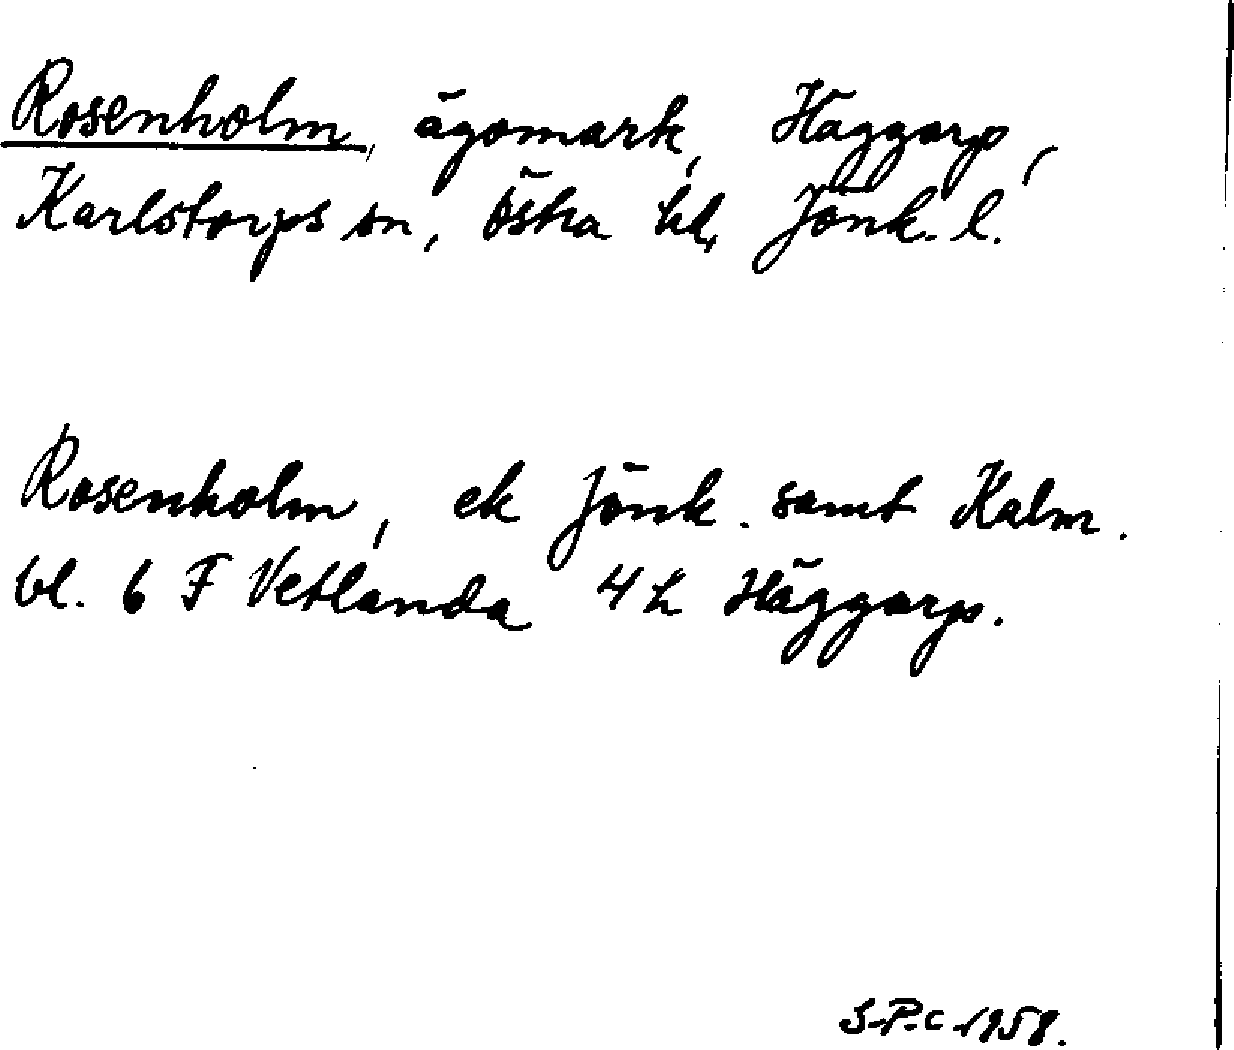 Rosenholm, ägomark, Häggarp,
Karlstorps sn, Östra hd, Jönk. l.
Rosenholm, ek Jönk. samt Kalm.
bl. 6 F Vetlanda 4 h Häggarp.
S-P-c 1958.